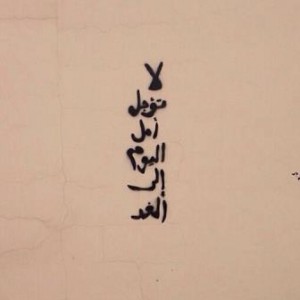 لا
تؤجل
أمل
اليوم
إلا
ألغد